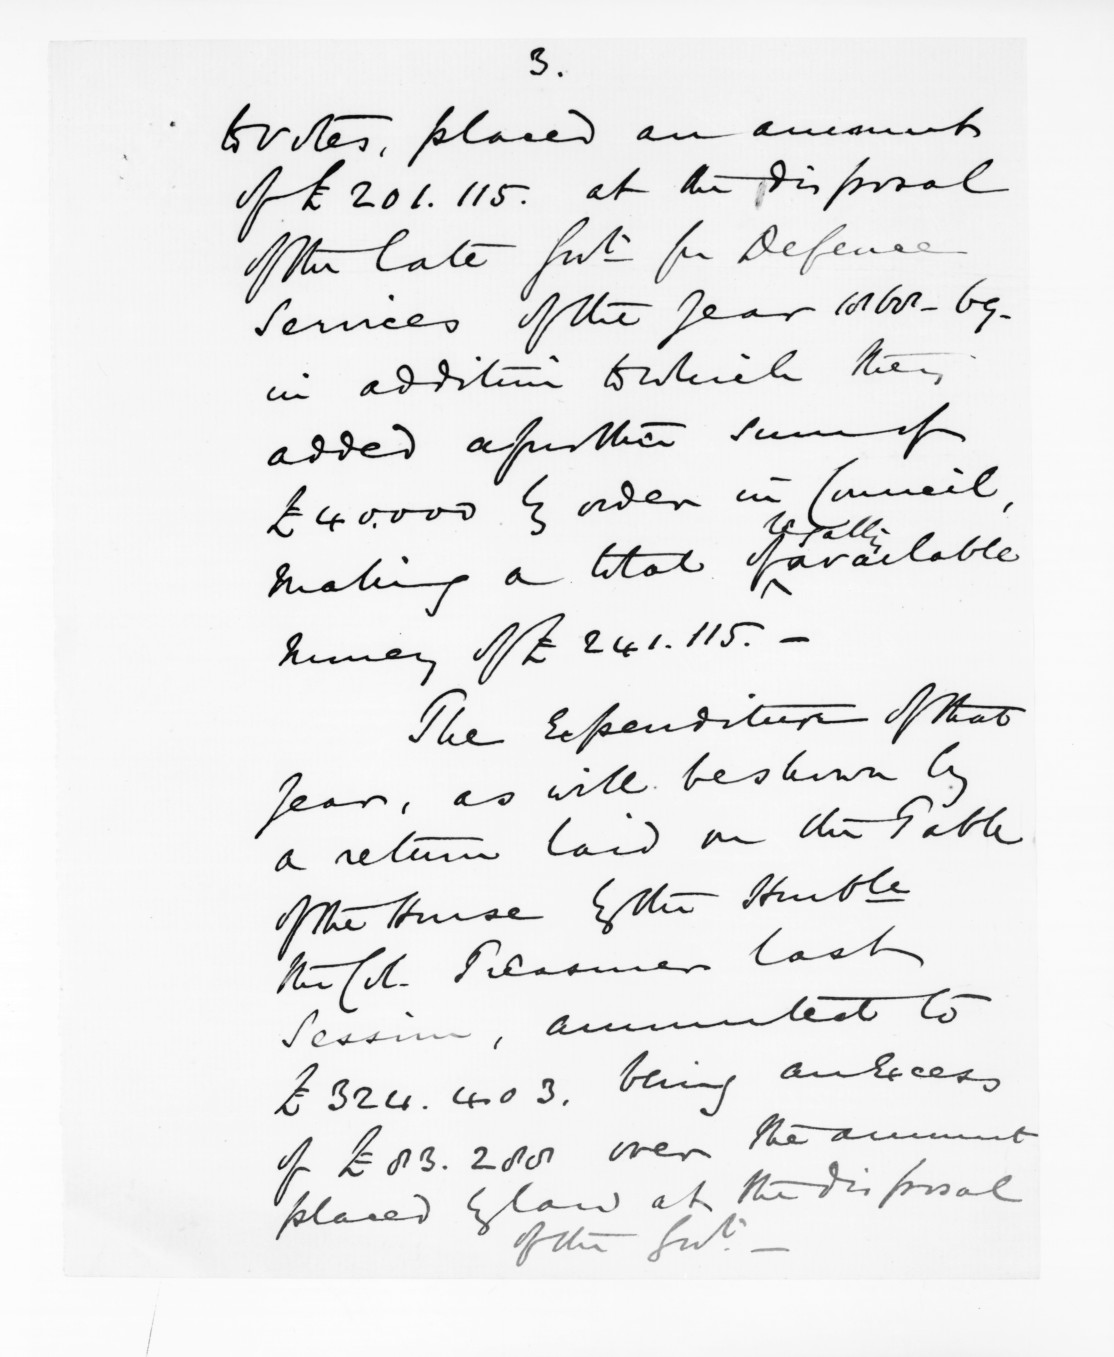 3.
to votes, placed an amount
of £201.115. at the disposal
of the late Govt. for Defence
Services of the year 1868-69-
in addition to which they
added a further sum of
£40.000 by order in Council,
legally
making a total of available
money of £241.115. -
The Expenditure of that
year, as will be shown by
a return laid on the Table
of the House by the Honble
the Col. Treasurer last
Session, amounted to
£324.403. being an Excess
of £83.288 over the amount
placed by law at the disposal
of the Govt. -